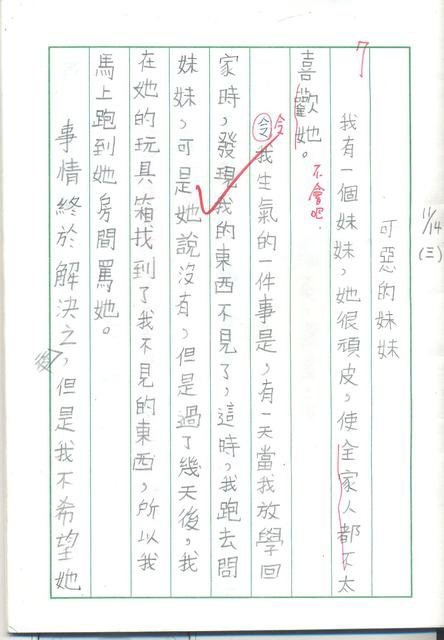 11/14(三)
可惡的妹妹
7
我有一個妹妹,她很頑皮,使全家人都不太
喜歡她。
不會吧.
令
令我生氣的一件事是,有一天當我放學回
家時,發現我的東西不見了,這時,我跑去問
妹妹,可是她說沒有,但是過了幾天後,我
在她的玩具箱找到了我不見的東西,所以我
馬上跑到她房間罵她。
事情終於解決之,但是我不希望她
後